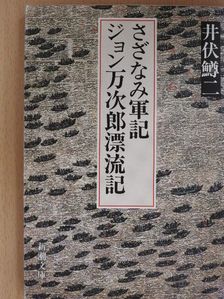 井伏鱒二
さざなみ軍記
ジョン万次郎漂流記
新潮文庫